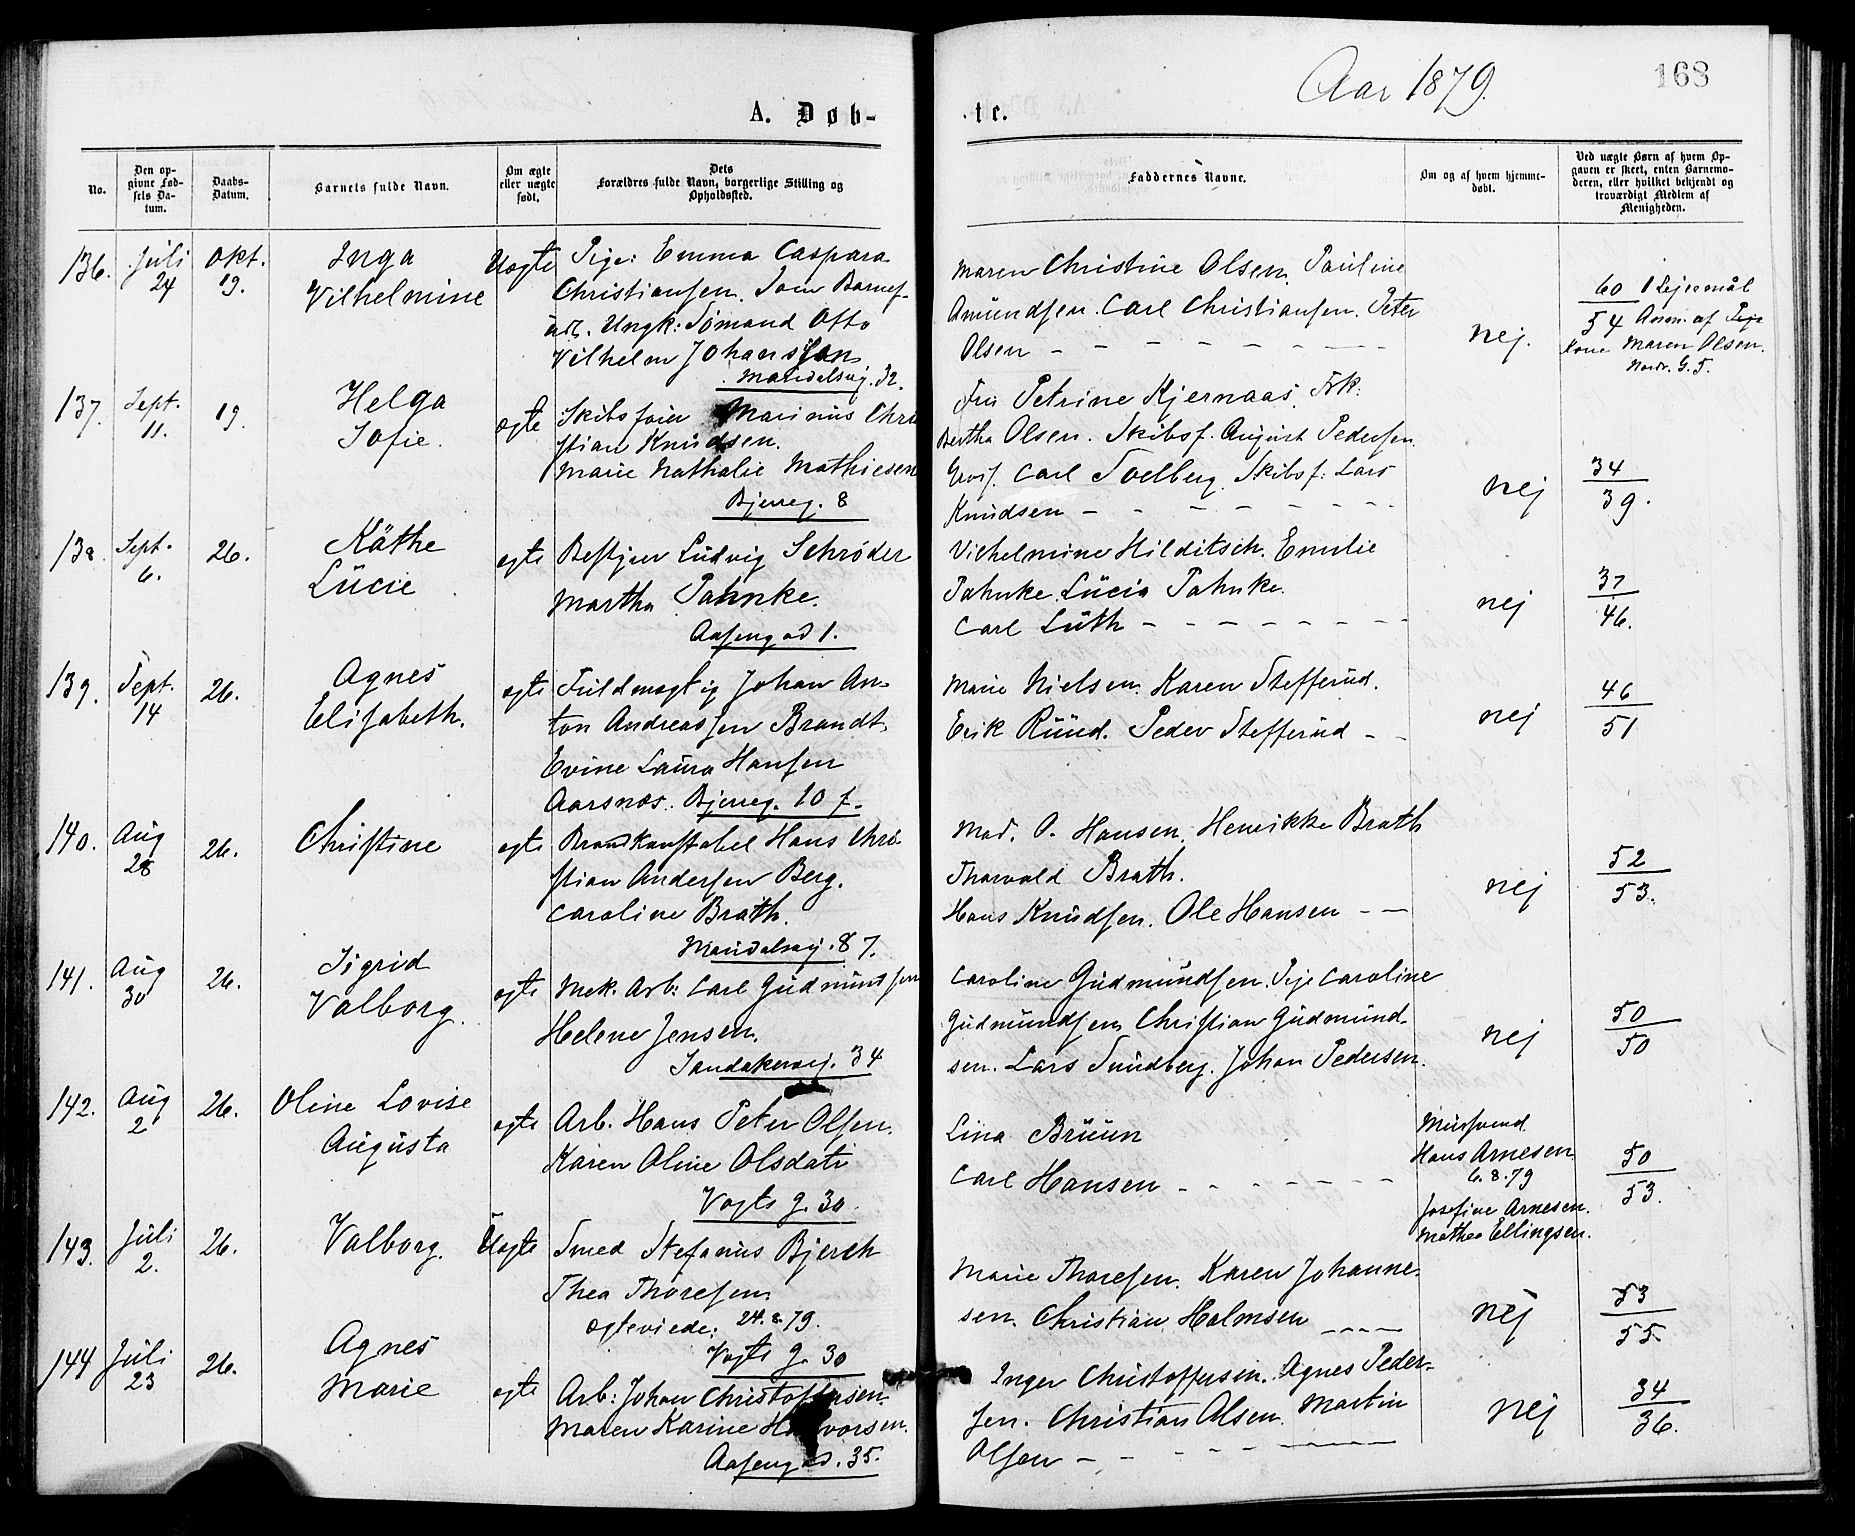 Aar 1879.
168
A. Døb-
te.
No.
Den op-
givne Fød-
sels Da-
tum.
Daabs-
Datum.
Barnets fulde Navn.
Om ægte
eller uægte
født.
Dets
Forældres fulde Navn, borgerlige Stilling og
Opholdssted.
Faddernes Navne.
Om og af hvem hjemme-
døbt.
Ved uægte Børn af hvem Op-
gaven er skeet, enten Barnemo-
deren, eller hvilket bekjendt og
troværdigt Medlem af
Menigheden.
136. Juli 24 Okt. 19.
Inga
Vilhelmine
Uægte
Pige: Emma Caspara
Christiansen. Som Barnef-
Ungk: Sømand Otto
Vilhelm Johanssen
Maridalsvej. 32.
Maren Christine Olsen. Pauline
Amundsen. Carl Christiansen. Peter
Olsen
nej.
60 1 Lejermaal
54 Anm. af
Kone Maren Olsen.
Nordr. G. 5.
137. Sept. 11. 19.
Helga
Sofie.
ægte
Skibsfører Marinus Chri
stian Knudsen.
Marie Nathalie Mathiesen
Bjerreg. 8
Fru Petrine Kjernaas. Frk.
Bertha Olsen. Skibsf. August Pedersen.
Carl Solberg. Skibsf. Lars
Knudsen
nej
34
39.
138. Sept. 6. 26.
Käthe
Lücie
ægte
Bestyrer Ludvig Schrøder
Martha Pahnke.
Aasengad 1.
Vilhelmine Hilditsch. Emilie
Pahnke. Lücia Pahnke.
Carl Lüth
nej
37
46.
139. Sept. 14 26.
Agnes
Elisabeth.
ægte
Fuldmægtig Johan An-
ton Andreassen Brandt.
Evine Laura Hansen
Aarsnæs. Bjerreg. 10 f.
Marie Nielsen. Karen Stefferud.
Erik Ruud. Peder Stefferud
nej
46
51
140. Aug 28 26.
Christine
ægte
Brandkonstabel Hans Chri-
stian Andersen Berg.
Caroline Brath.
Maridalsvej. 87.
Mad. O. Hansen. Henrikke Brath
Thorvald Brath.
Hans Knudsen. Ole Hansen
nej
52
53.
141. Aug 30 26.
Sigrid
Valborg.
ægte
Mek. Arb: Carl Gudmundsen
Helene Jensen.
Sandakervej. 34
Caroline Gudmundsen. Pige Caroline
Gudmundsen Christian Gudmund-
sen. Lars Sundberg. Johan Pedersen.
nej
50
50
142. Aug 2 26.
Oline Lovise
Augusta
ægte
Arb. Hans Peter Olsen.
Karen Oline Olsdatr
Vogts g. 30.
Lina Bruun
Carl Hansen
Mursvend
Hans Arnesen.
6.8.79
Josefine Arnesen.
Mathea Ellingsen.
50
53.
143. Juli 2. 26.
Valborg.
Uægte
Smed Stefanus Bjerch
Thea Thoresen.
ægteviede: 24.8.79.
Vogts g. 30
Marie Thoresen. Karen Johanne-
sen. Christian Holmsen
nej
53
55.
144 Juli 23 26.
Agnes
Marie
ægte
Arb: Johan Christoffersen.
Maren Karine Halvorsen.
Aasengad. 35.
Inger Christoffersen. Agnes Peder-
sen. Christian Olsen. Martin
Olsen
nej
34
36.